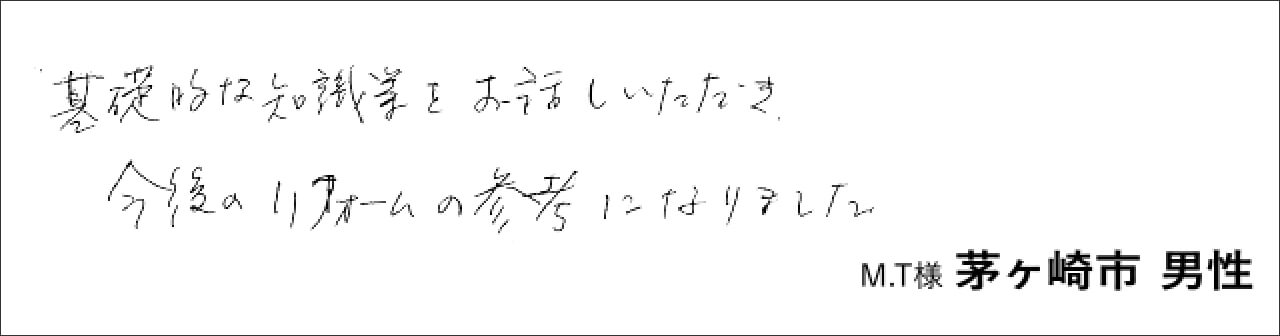 基礎的な知識等をお話しいただき
今後のリフォームの参考になりました
M.T様 茅ヶ崎市 男性